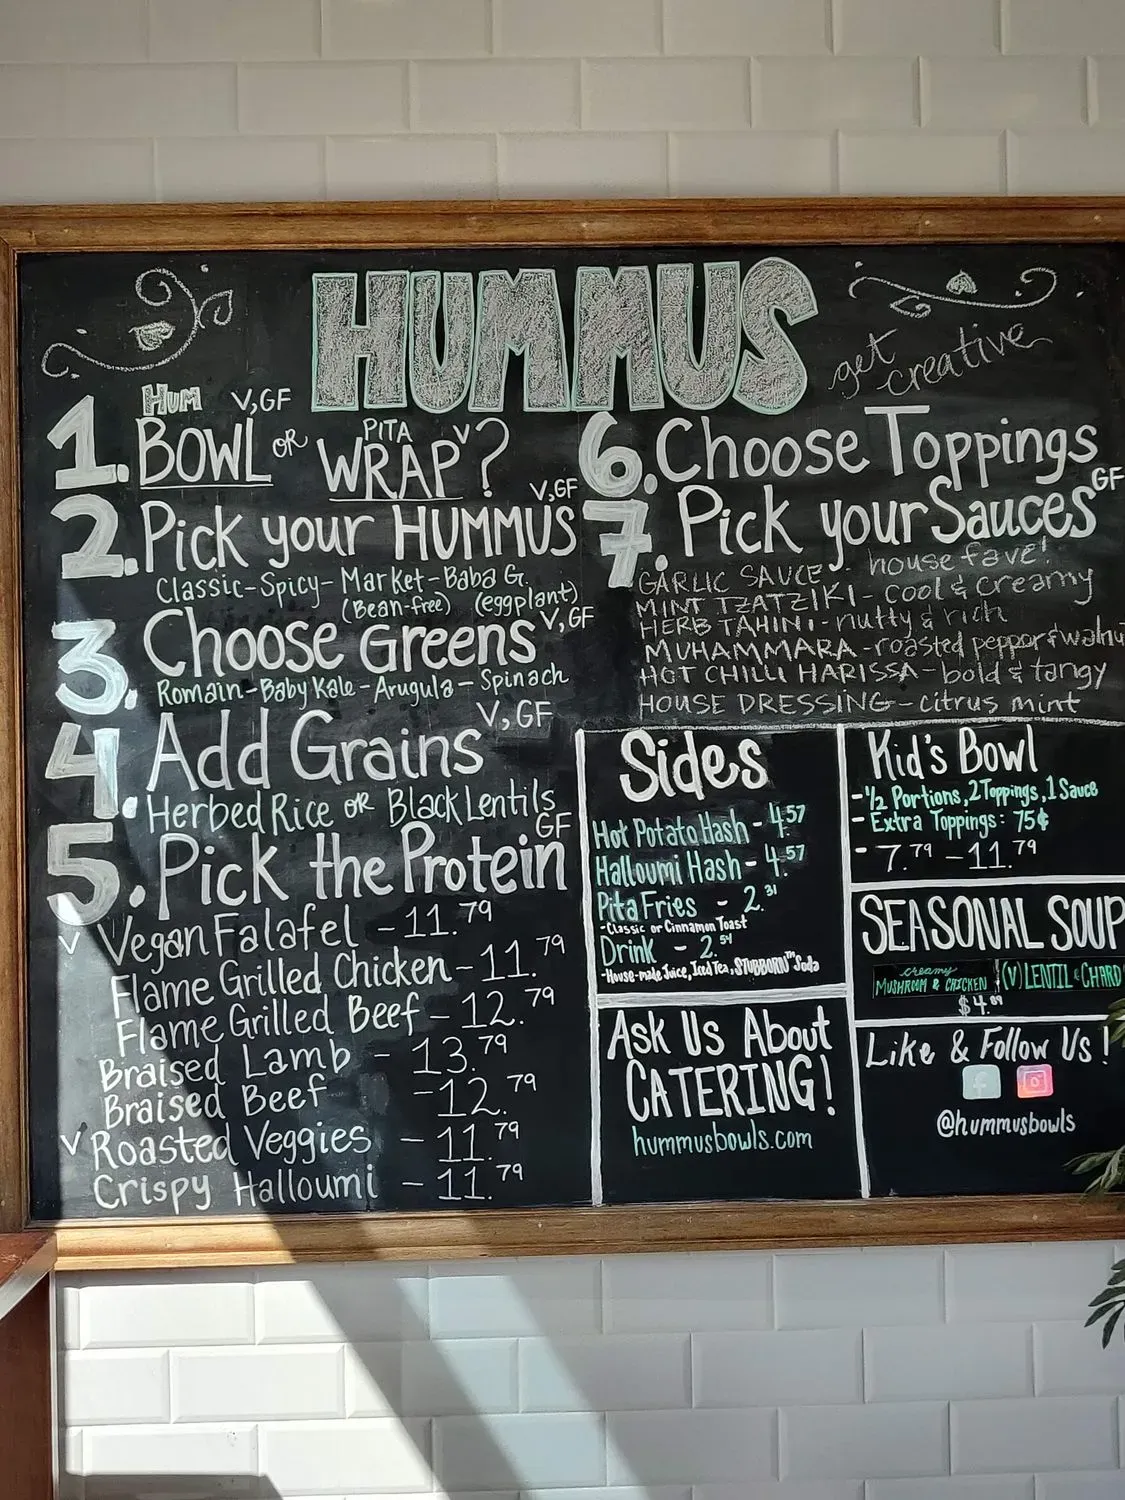 HUMMUS
get creative
Hum V, GF
1. BOWL OR PITA WRAP V?
2. Pick your HUMMUS V, GF
Classic-Spicy-Market-Baba G.
(Bean-free) (eggplant)
3. Choose Greens V, GF
Romain-Baby Kale-Arugula-Spinach
4. Add Grains V, GF
Herbed Rice OR Black Lentils
5. Pick the Protein GF
V Vegan Falafel - 11.79
Flame Grilled Chicken - 11.79
Flame Grilled Beef - 12.79
Braised Lamb - 13.79
Braised Beef - 12.79
V Roasted Veggies - 11.79
Crispy Halloumi - 11.79
6. Choose Toppings
7. Pick your Sauces GF
GARLIC SAUCE - house fave!
MINT TZATZIKI - cool & creamy
HERB TAHINI - nutty & rich
MUHAMMARA - roasted pepper & walnu
HOT CHILLI HARISSA - bold & tangy
HOUSE DRESSING - citrus mint
Sides
Hot Potato Hash - 4.57
Halloumi Hash - 4.57
Pita Fries - 2.31
-Classic or Cinnamon Toast
Drink - 2.54
-House-made Juice, Iced Tea, STUBBORN™ Soda
Ask Us About
CATERING!
hummusbowls.com
Kid's Bowl
- 1/2 Portions, 2 Toppings, 1 Sauce
- Extra Toppings: 75¢
- 7.79 - 11.79
SEASONAL SOUP
creamy
MUSHROOM & CHICKEN (V) LENTIL & CHARD
$4.09
Like & Follow Us!
@hummusbowls